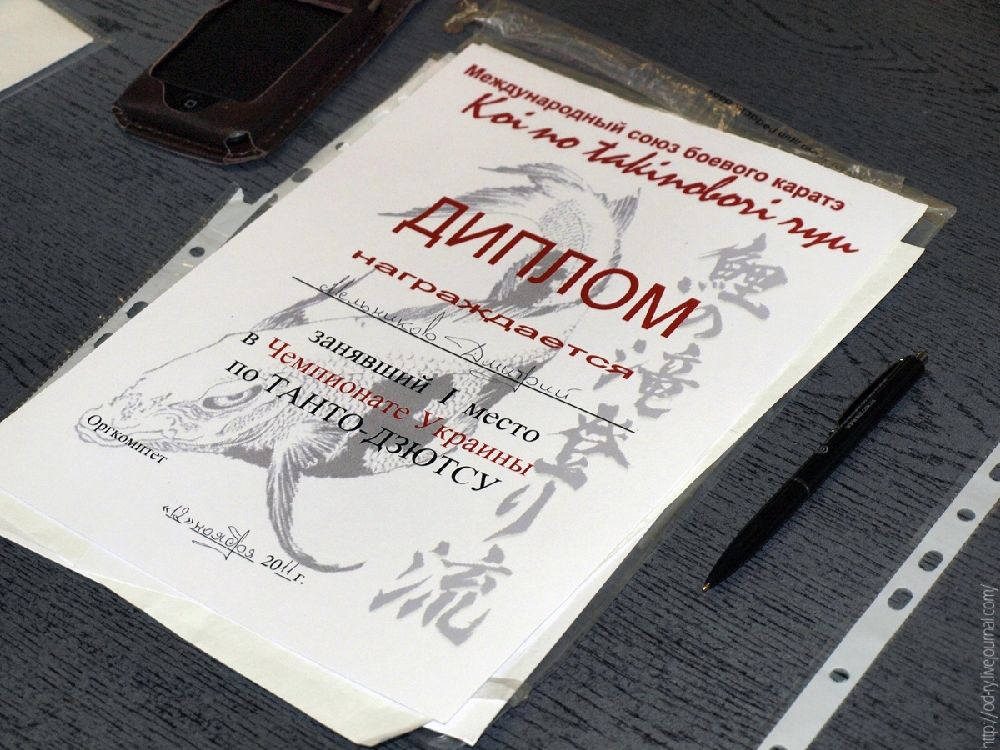 Международный союз боевого каратэ
Koi no takinobori ryu
ДИПЛОМ
награждается
Мельников Дмитрий
занявший I место
в Чемпионате Украины
по ТАНТО-ДЗЮТСУ
Оргкомитет
«12» ноября 2011 г.
鯉の滝登り流
http://od-ry.livejournal.com/